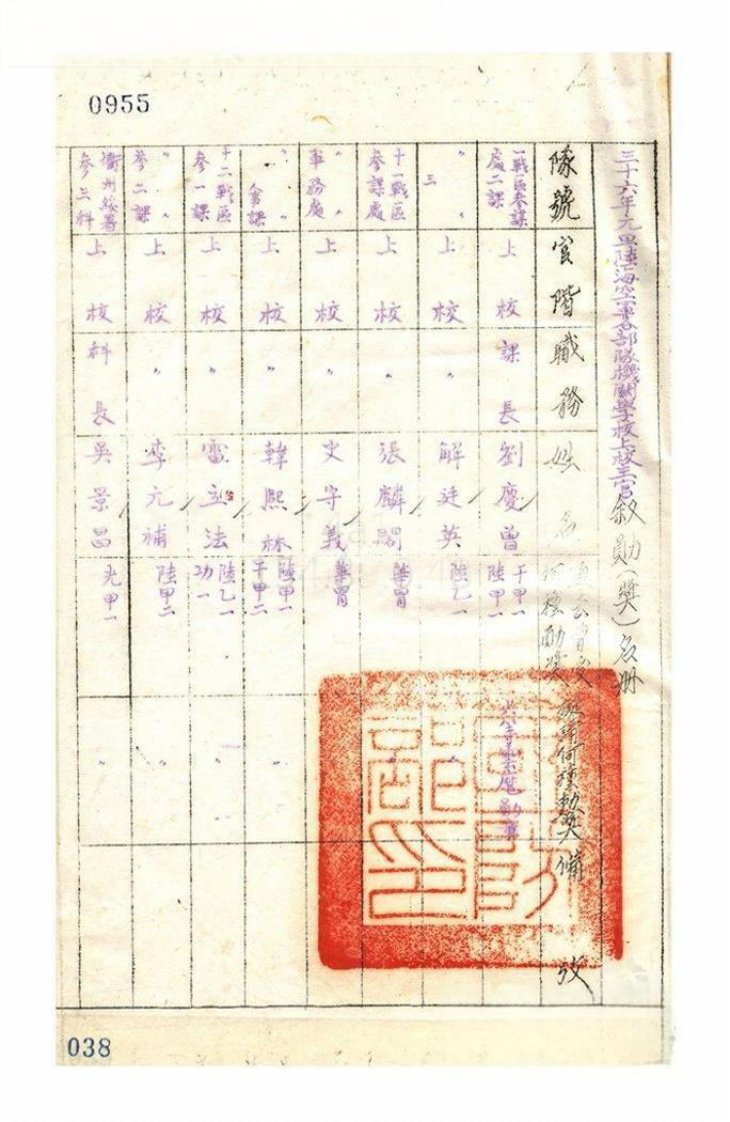 0955
三十六年元旦陸海空軍各部隊機關學校上校主官敘勛(獎)名册
隊號 官階 職務 姓名 備 攷
一戰區參謀處二課 上校 課長 劉慶曾 干甲一 陸甲一
〃 三 〃 上校 〃 解廷英 陸乙一
十一戰區參謀處 上校 〃 張麟閣 華胄
〃 軍務處 上校 〃 史守義 華胄
〃 〃 課 上校 〃 韓熙林 陸甲一 干甲二
十二戰區參一課 上校 〃 雷立法 陸乙一 功一
〃 參二課 〃 上校 〃 李元補 陸甲二
衢州綏署參三科 上校 科長 吳景昌 光甲一
038